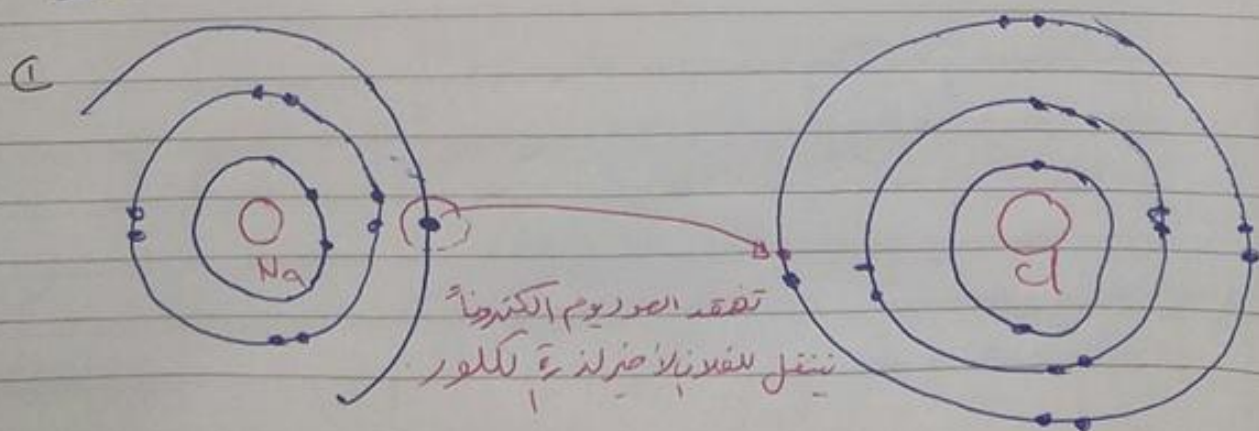 ①
Na
Cl
تفقد الصوديوم الكترونًا
ينتقل للغلاف الأخير لذرة الكلور